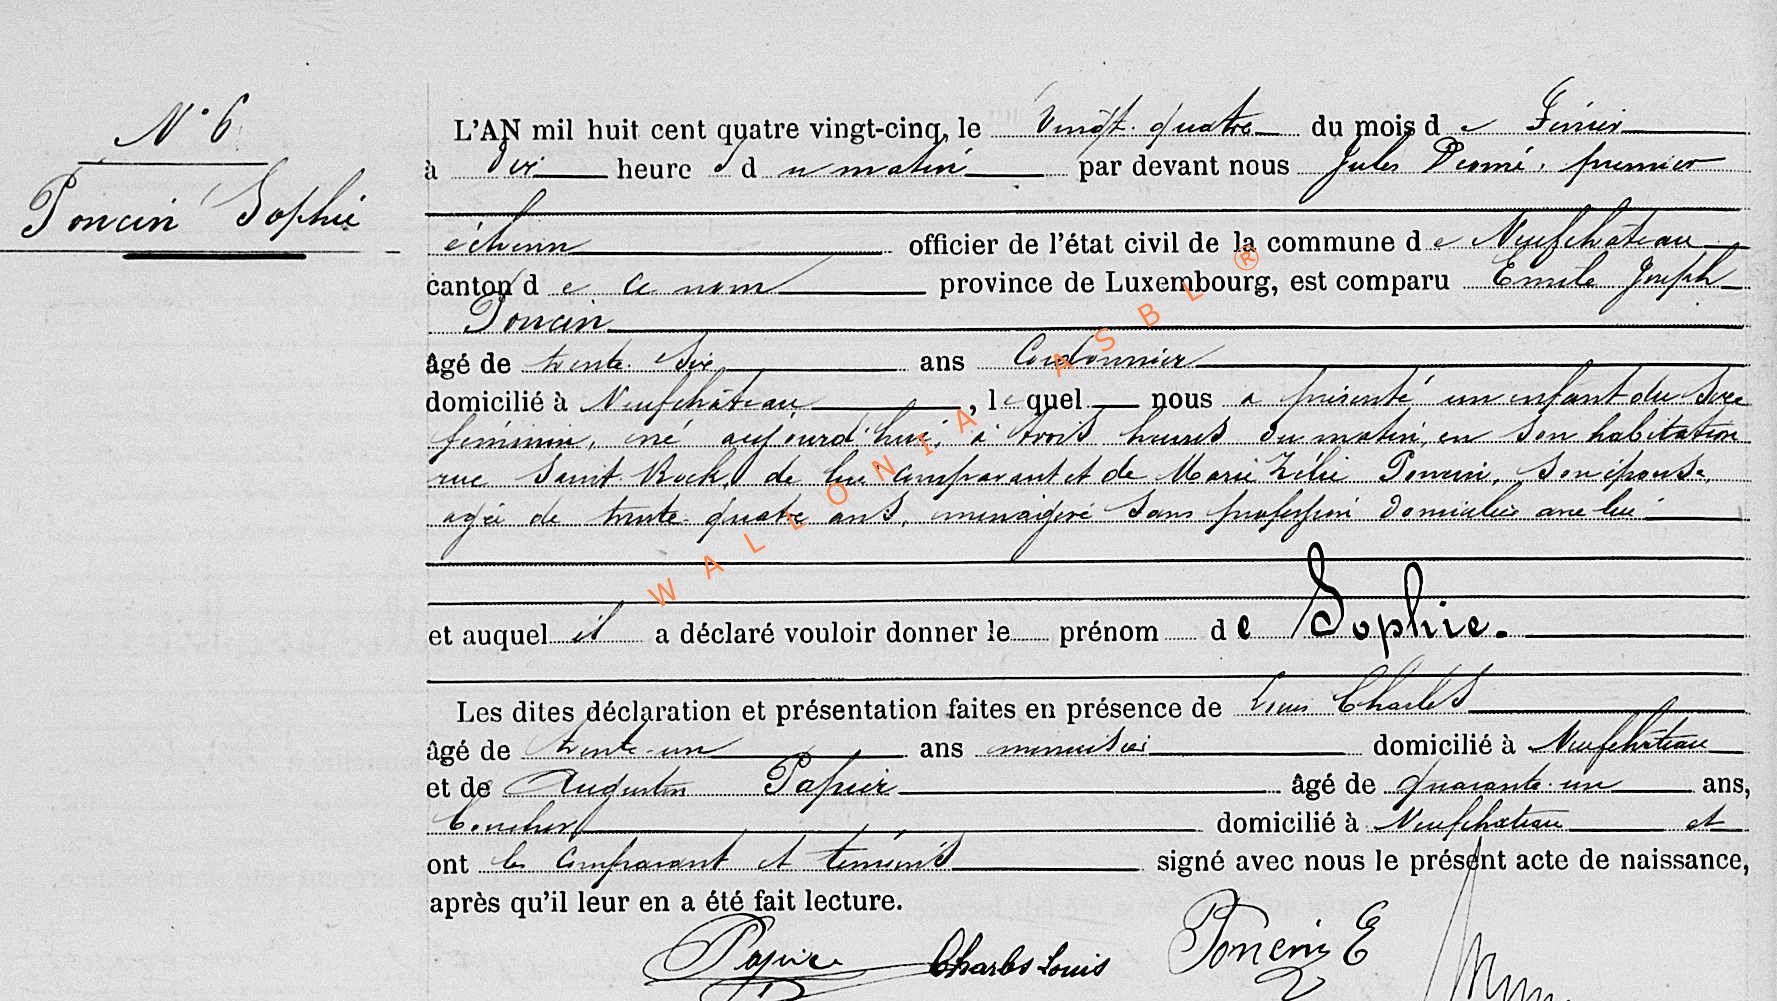 N° 6
Poncin Sophie
L'AN mil huit cent quatre vingt-cinq, le Vingt-quatre du mois de Février
à dix heures du matin par devant nous Jules premier
échevin officier de l'état civil de la commune de Neufchâteau
canton de ce nom province de Luxembourg, est comparu Emile Joseph
Poncin
âgé de trente six ans Cordonnier
domicilié à Neufchâteau, lequel nous a présenté un enfant du sexe
féminin, né aujourd'hui, à trois heures du matin, en son habitation
rue Saint Roch, de lui comparant et de Marie Zélie Poncin, son épouse,
agée de trente quatre ans, ménagère sans profession domiciliée avec lui
et auquel il a déclaré vouloir donner le prénom de Sophie.
Les dites déclaration et présentation faites en présence de Louis Charles
âgé de trente-un ans menuisier domicilié à Neufchâteau
et de Augustin Papier âgé de quarante-un ans,
boucher domicilié à Neufchateau et
ont les comparant et témoins signé avec nous le présent acte de naissance,
après qu'il leur en a été fait lecture.
Papier Charles Louis Poncin E
WALLONIA ASBL ®